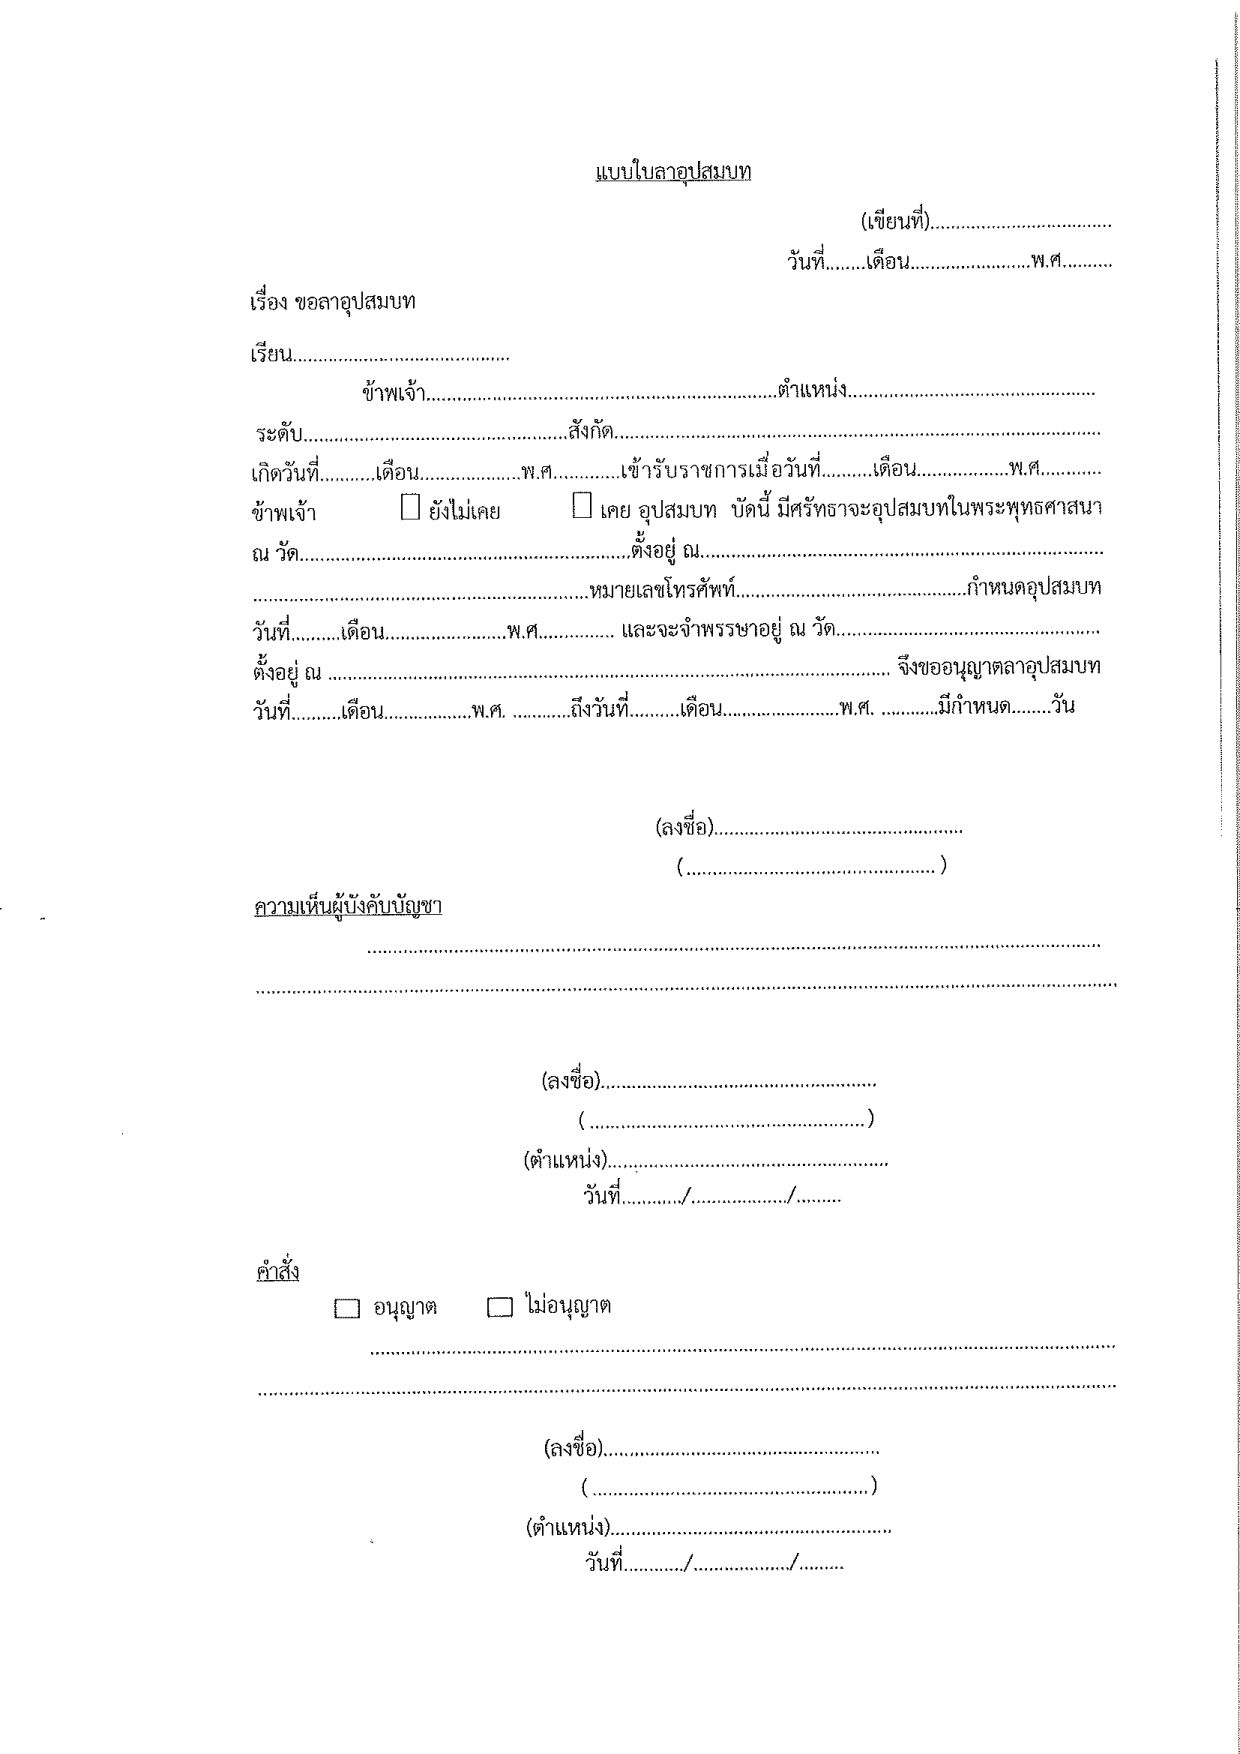 แบบใบลาอุปสมบท
(เขียนที่)....................................
วันที่........เดือน........................พ.ศ..........
เรื่อง ขอลาอุปสมบท
เรียน...........................................
ข้าพเจ้า......................................................................ตำแหน่ง.................................................
ระดับ.....................................................สังกัด.................................................................................................
เกิดวันที่...........เดือน....................พ.ศ.............เข้ารับราชการเมื่อวันที่..........เดือน..................พ.ศ............
ข้าพเจ้า ☐ ยังไม่เคย ☐ เคย อุปสมบท บัดนี้ มีศรัทธาจะอุปสมบทในพระพุทธศาสนา
ณ วัด..................................................................ตั้งอยู่ ณ................................................................................
...................................................................หมายเลขโทรศัพท์..............................................กำหนดอุปสมบท
วันที่..........เดือน........................พ.ศ............... และจะจำพรรษาอยู่ ณ วัด....................................................
ตั้งอยู่ ณ ................................................................................................................ จึงขออนุญาตลาอุปสมบท
วันที่..........เดือน.................พ.ศ. ............ถึงวันที่..........เดือน.......................พ.ศ. ...........มีกำหนด........วัน
(ลงชื่อ).................................................
(.................................................)
ความเห็นผู้บังคับบัญชา
..................................................................................................................................................
............................................................................................................................................................................
(ลงชื่อ)......................................................
(......................................................)
(ตำแหน่ง).......................................................
วันที่............/.................../.........
คำสั่ง
☐ อนุญาต ☐ ไม่อนุญาต
....................................................................................................................................................
............................................................................................................................................................................
(ลงชื่อ)......................................................
(......................................................)
(ตำแหน่ง).......................................................
วันที่............/.................../.........